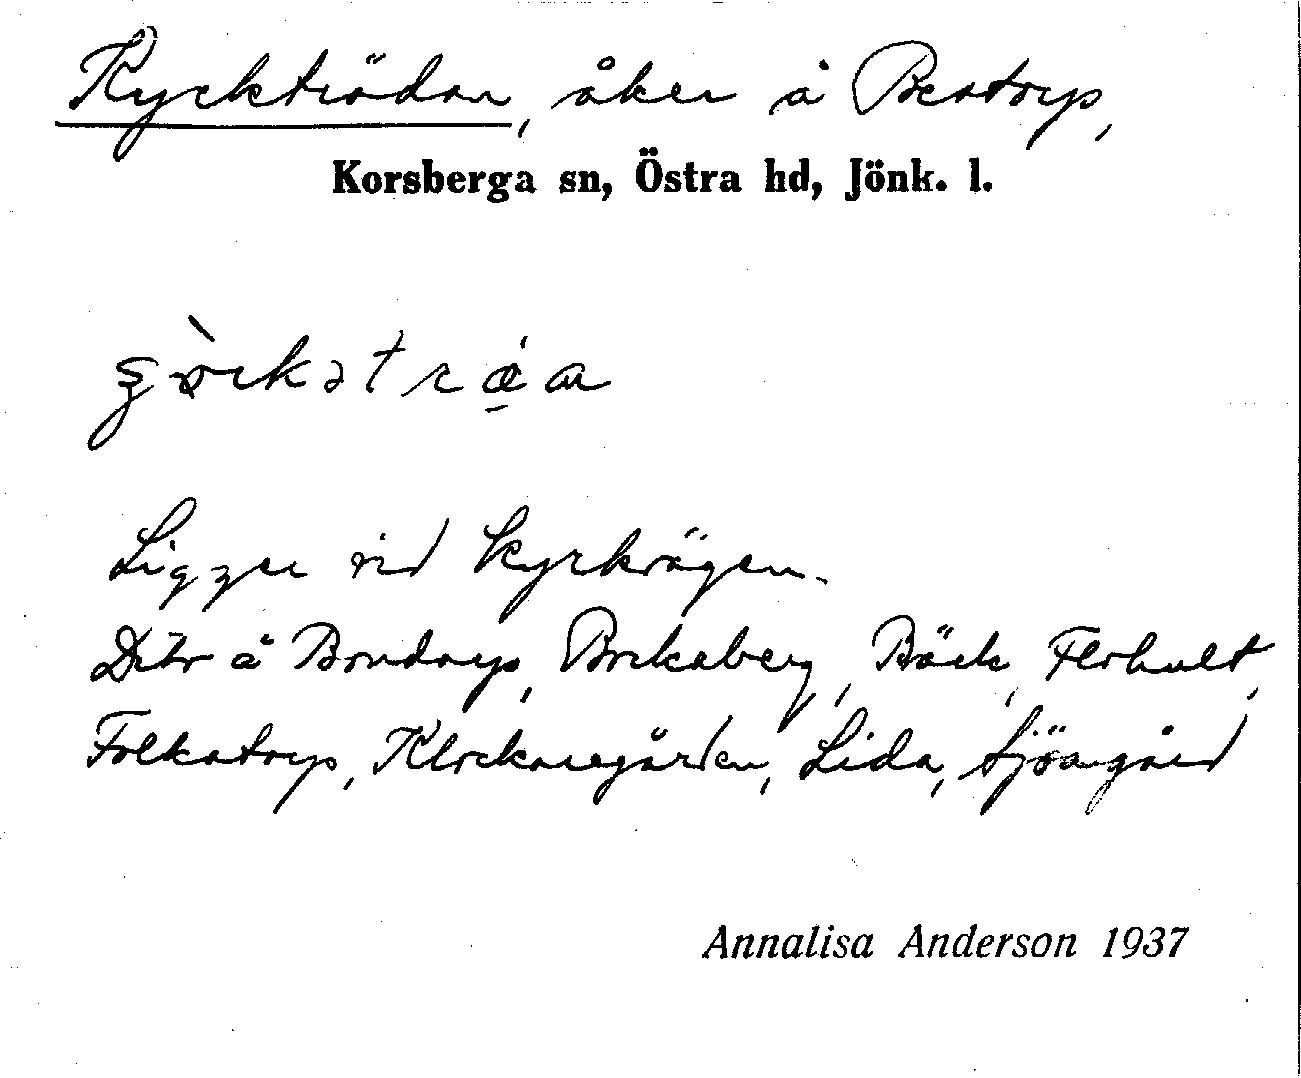 Kycktrödor, åker å Beatorp,
Korsberga sn, Östra hd, Jönk. l.
Ligger vid kyrkvägen.
Dito å Bondorp, Brckaberg, Bäck, Flohult,
Folkatorp, Klockaregården, Lida, Sjöagård
Annalisa Anderson 1937